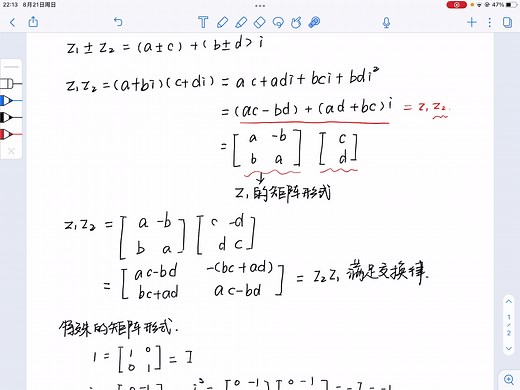 22:13 8月21日周日
47%
z₁ ± z₂ = (a±c) + (b±d) i
z₁z₂ = (a+bi)(c+di) = ac + adi + bci + bdi²
= (ac-bd) + (ad+bc) i = z₁z₂.
= [a -b; b a] [c; d]
z₁的矩阵形式
z₁z₂ = [a -b; b a] [c -d; d c]
= [ac-bd -(bc+ad); bc+ad ac-bd] = z₂z₁ 满足交换律.
特殊的矩阵形式.
1 = [1 0; 0 1] = I
1/2